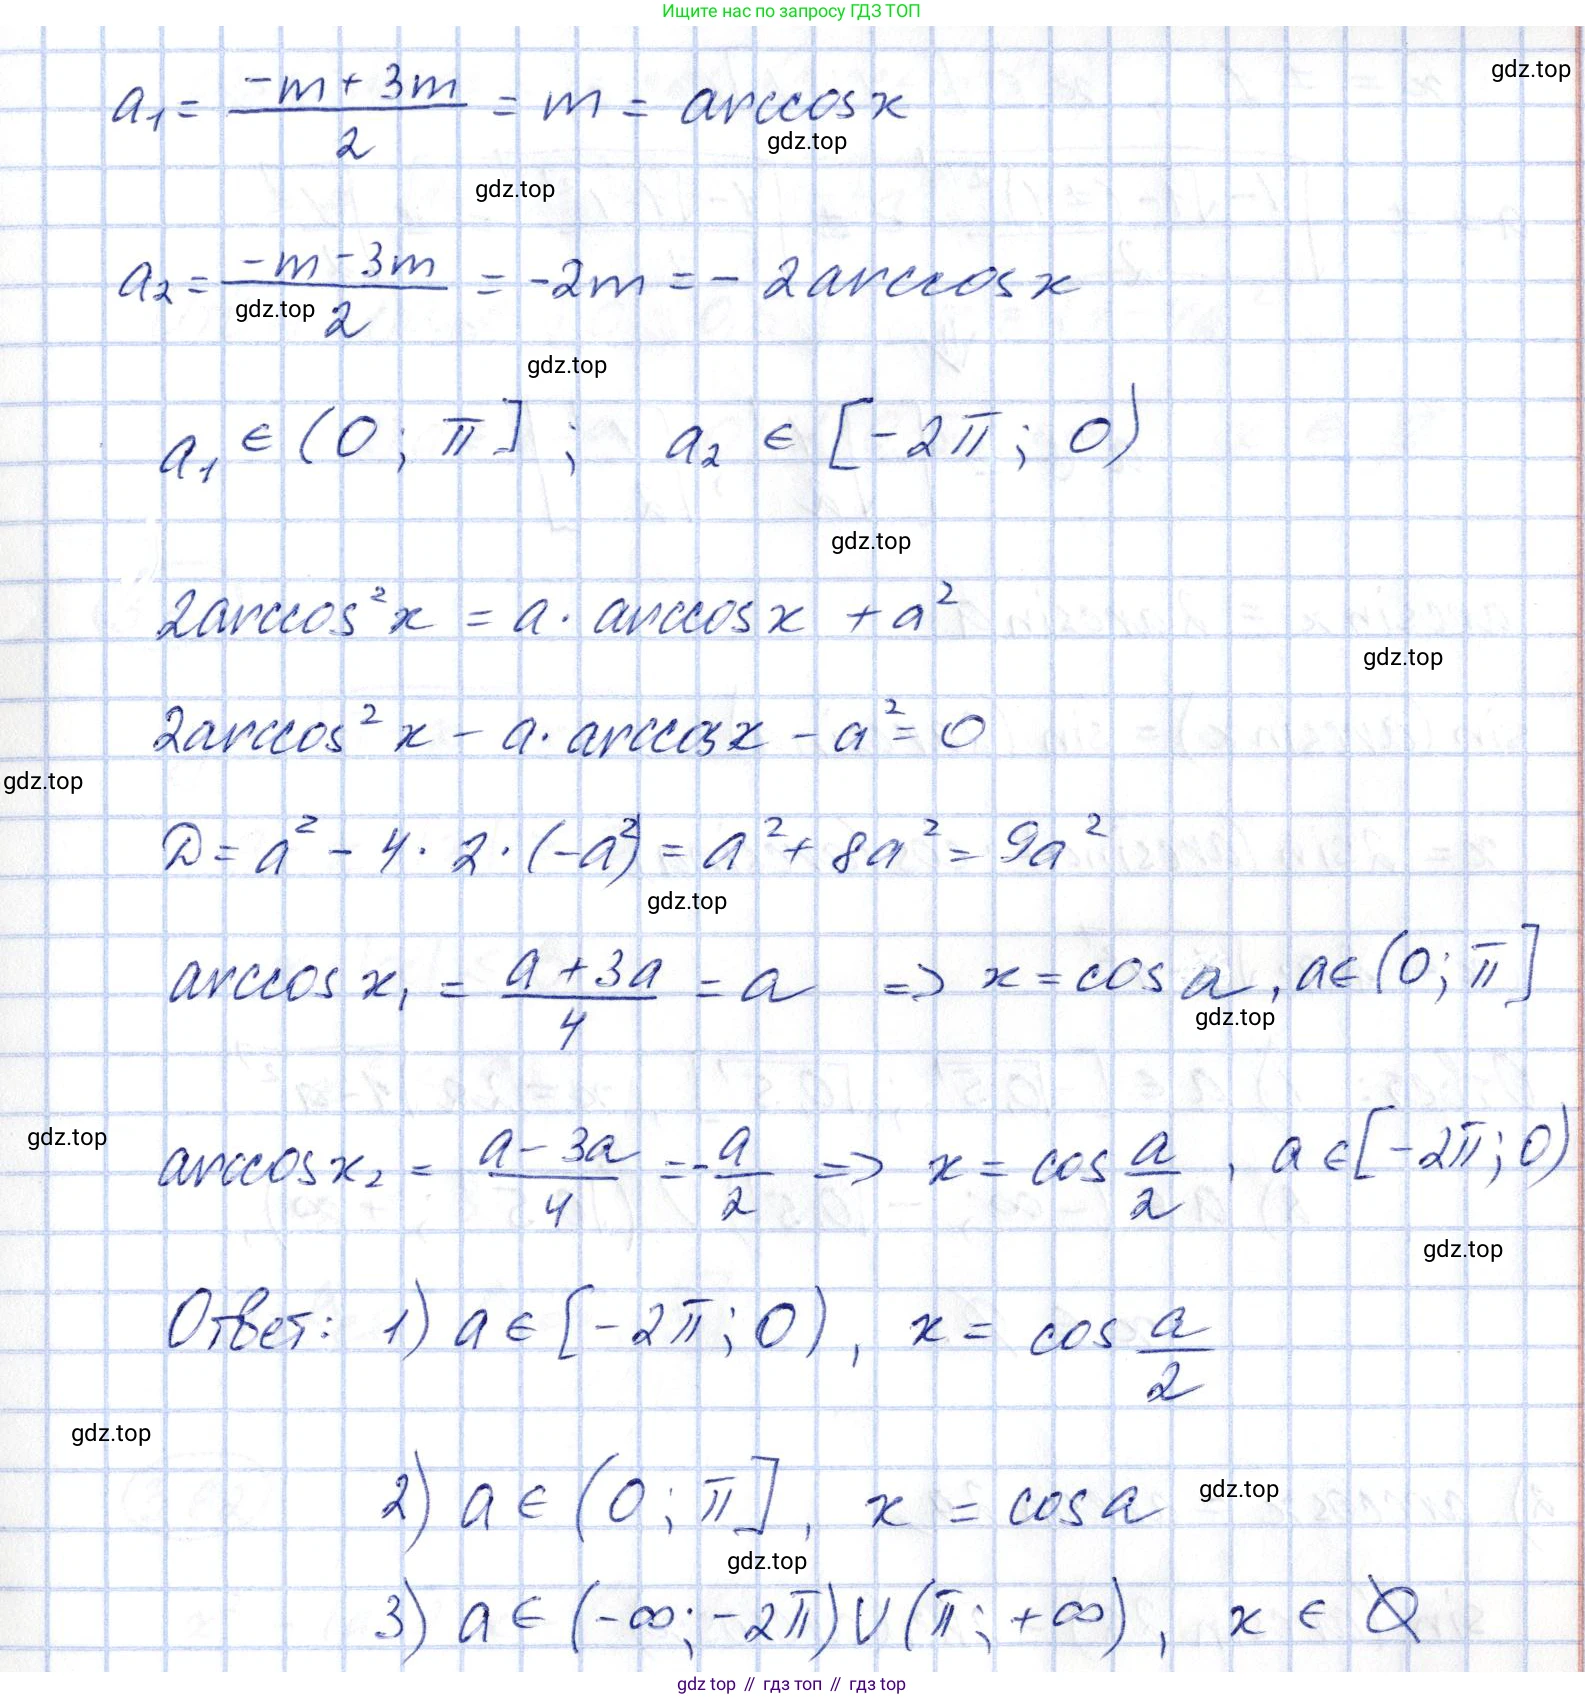 Ищите нас по запросу ГДЗ ТОП
gdz.top
a₁ = (-m + 3m)/2 = m = arccos x
gdz.top
gdz.top
a₂ = (-m - 3m)/2 = -2m = - 2arccos x
gdz.top
gdz.top
a₁ ∈ (0; π] ; a₂ ∈ [-2π; 0)
gdz.top
2arccos²x = a · arccos x + a²
gdz.top
2arccos²x - a · arccos x - a² = 0
gdz.top
D = a² - 4 · 2 · (-a²) = a² + 8a² = 9a²
gdz.top
arccos x₁ = (a + 3a)/4 = a => x = cos a, a ∈ (0; π]
gdz.top
gdz.top
arccos x₂ = (a - 3a)/4 = -a/2 => x = cos a/2, a ∈ [-2π; 0)
gdz.top
Ответ: 1) a ∈ [-2π; 0), x = cos a/2
gdz.top
2) a ∈ (0; π], x = cos a
gdz.top
gdz.top
3) a ∈ (-∞; -2π) ∪ (π; +∞), x ∈ ∅
gdz top // гдз топ // гдз top